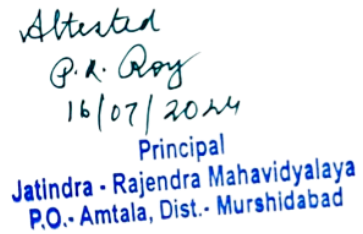 Attested
P. R. Roy
16/07/2024
Principal
Jatindra - Rajendra Mahavidyalaya
P.O.- Amtala, Dist.- Murshidabad